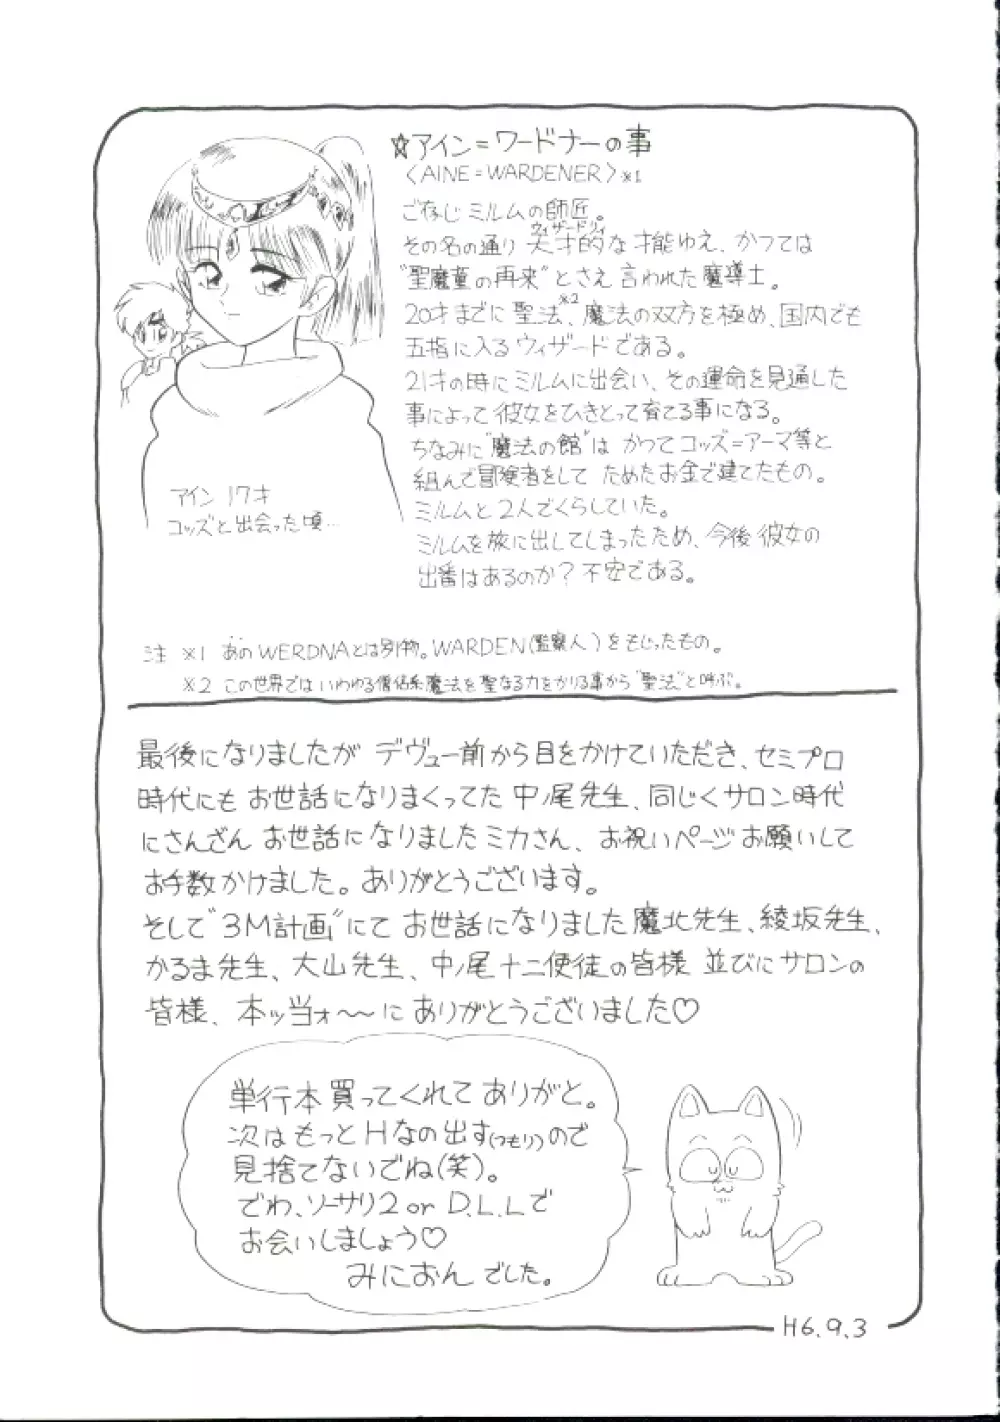 ☆アイン=ワードナーの事
〈AINE=WARDENER〉※1
ご存じ ミルムの師匠。
その名の通り 天才的な才能ゆえ、かつては
ウィザードリィ
"聖魔童の再来"とさえ 言われた 魔導士。
20才までに 聖法※2、魔法の双方を極め、国内でも
五指に入るウィザードである。
21才の時にミルムに出会い、その運命を見通した
事によって 彼女をひきとって育てる事になる。
ちなみに"魔法の館"は かつてコッズ=アーマ等と
組んで冒険者をして ためたお金で建てたもの。
ミルムと2人でくらしていた。
ミルムを旅に出してしまったため、今後 彼女の
出番はあるのか? 不安である。
アイン 17才
コッズと出会った頃…
注 ※1 あのWERDNAとは別物。WARDEN(監察人)をもじったもの。
※2 この世界では いわゆる僧侶系魔法を聖なる力をかりる事から"聖法"と呼ぶ。
最後になりましたが デヴュー前から目をかけていただき、セミプロ
時代にも お世話になりまくってた 中ノ尾先生、同じくサロン時代
にさんざん お世話になりましたミカさん、お祝いページお願いして
お手数かけました。ありがとうございます。
そして"3M計画"にて お世話になりました 魔北先生、綾坂先生、
かるま先生、大山先生、中ノ尾十二使徒の皆様 並びにサロンの
皆様、本ッ当ォ〜〜に ありがとうございました♡
単行本買ってくれて ありがと。
次は もっと Hなの出す(つもり)ので
見捨てないでね(笑)。
でわ、ソーサリ2 or D.L.Lで
お会いしましょう♡
みにおん でした。
H6.9.3